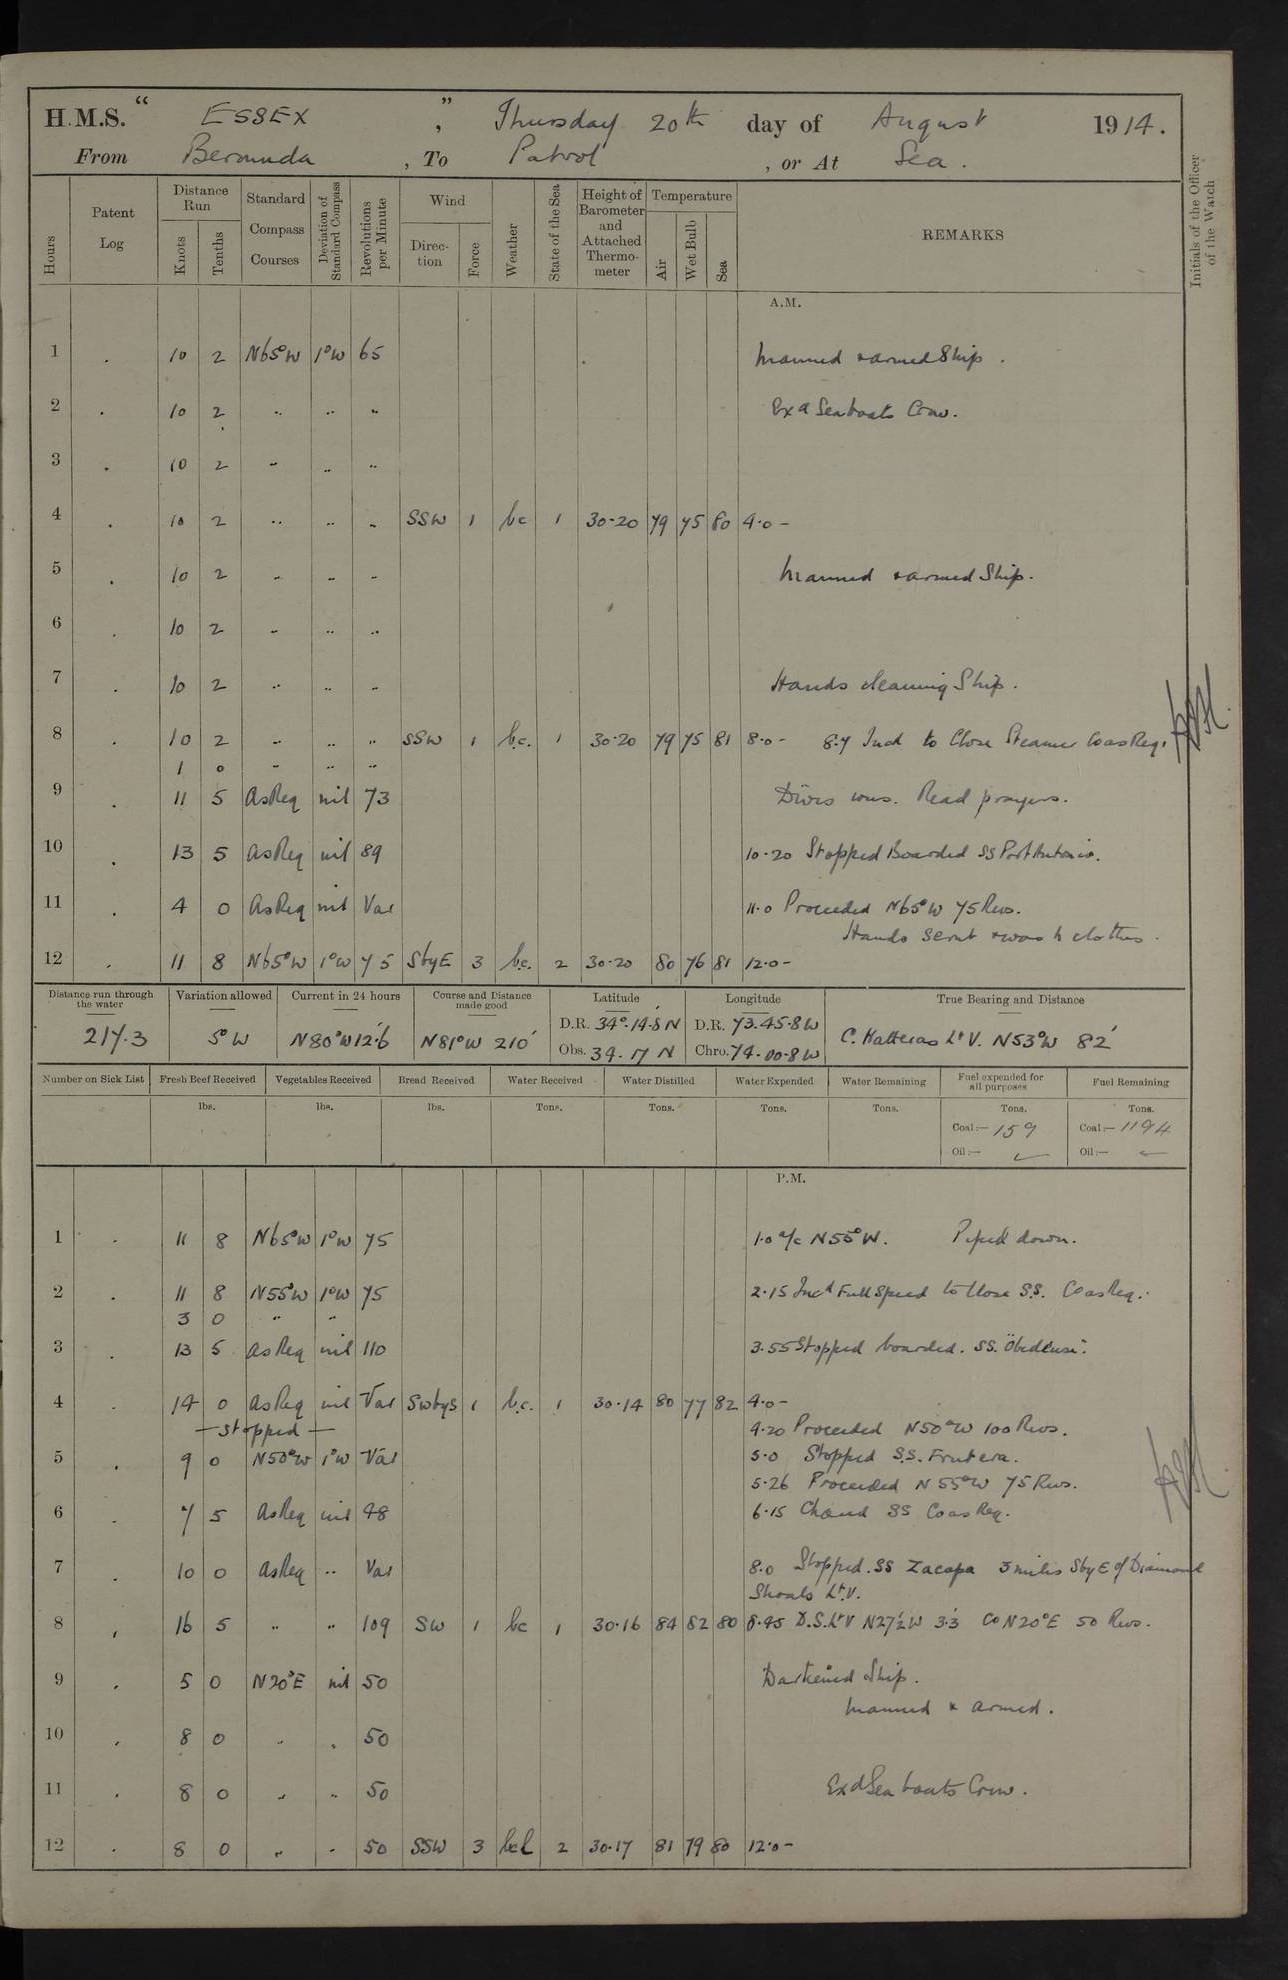 H.M.S. “ ESSEX ” , Thursday 20th day of August 1914.
From Bermuda , To Patrol , or At Sea .
Hours
Patent Log
Distance Run
Knots
Tenths
Standard Compass Courses
Deviation of Standard Compass
Revolutions per Minute
Wind
Direction
Force
Weather
State of the Sea
Height of Barometer and Attached Thermometer
Temperature
Air
Wet Bulb
Sea
REMARKS
Initials of the Officer of the Watch
A.M.
1 . 10 2 N65°W 1°W 65 Manned & armed Ship .
2 . 10 2 .. .. .. Exd Seaboats Crew.
3 . 10 2 .. .. ..
4 . 10 2 .. .. .. SSW 1 bc 1 30·20 79 75 80 4·0 –
5 . 10 2 .. .. .. Manned & armed Ship.
6 . 10 2 .. .. ..
7 . 10 2 .. .. .. Hands cleaning Ship .
8 . 10 2 .. .. .. SSW 1 b.c. 1 30·20 79 75 81 8·0 – 8.7 Incd to Close Steamer Co as Req.
1 0 .. .. ..
9 . 11 5 As Req nil 73 Divis ions. Read prayers.
10 . 13 5 As Req nil 89 10·20 Stopped Boarded SS Port Antonio.
11 . 4 0 As Req nil Var 11·0 Proceeded N65°W 75 Revs.
Hands scrub & wash clothes .
12 . 11 8 N65°W 1°W 75 SbyE 3 b.c. 2 30·20 80 76 81 12·0 –
Distance run through the water 217.3
Variation allowed 5°W
Current in 24 hours N80°W 12.6'
Course and Distance made good N81°W 210'
Latitude D.R. 34°.14.8 N
Obs. 34. 17 N
Longitude D.R. 73.45.8 W
Chro. 74.00.8 W
True Bearing and Distance C. Hatteras Lt V. N53°W 82'
Number on Sick List
Fresh Beef Received lbs.
Vegetables Received lbs.
Bread Received lbs.
Water Received Tons.
Water Distilled Tons.
Water Expended Tons.
Water Remaining Tons.
Fuel expended for all purposes Tons.
Coal:— 159
Oil:—
Fuel Remaining Tons.
Coal:— 1194
Oil:—
P.M.
1 . 11 8 N65°W 1°W 75 1·0 a/c N55°W. Piped down.
2 . 11 8 N55°W 1°W 75 2·15 Incd Full Speed to Close S.S. Co as Req.
3 0 .. ..
3 . 13 5 As Req nil 110 3.55 Stopped boarded. SS.
4 . 14 0 As Req nil Var SWbyS 1 b.c. 1 30·14 80 77 82 4·0 –
— stopped — 4.20 Proceeded N50°W 100 Revs.
5 . 9 0 N50°W 1°W Var 5·0 Stopped S.S. Frutera.
5·26 Proceeded N55°W 75 Revs.
6 . 7 5 As Req nil 98 6·15 Chased SS Co as Req.
7 . 10 0 As Req .. Var 8.0 Stopped. SS Zacapa 3 miles SbyE of Diamond
Shoals Lt.V.
8 . 16 5 .. .. 109 SW 1 bc 1 30·16 84 82 80 8·45 D.S.LtV N27½W 3.3' Co N20°E 50 Revs.
9 . 5 0 N20°E nil 50 Darkened Ship .
Manned & armed .
10 . 8 0 .. . 50
11 . 8 0 .. .. 50 Exd Sea boats Crew .
12 . 8 0 .. . 50 SSW 3 bcl 2 30·17 81 79 80 12·0 –